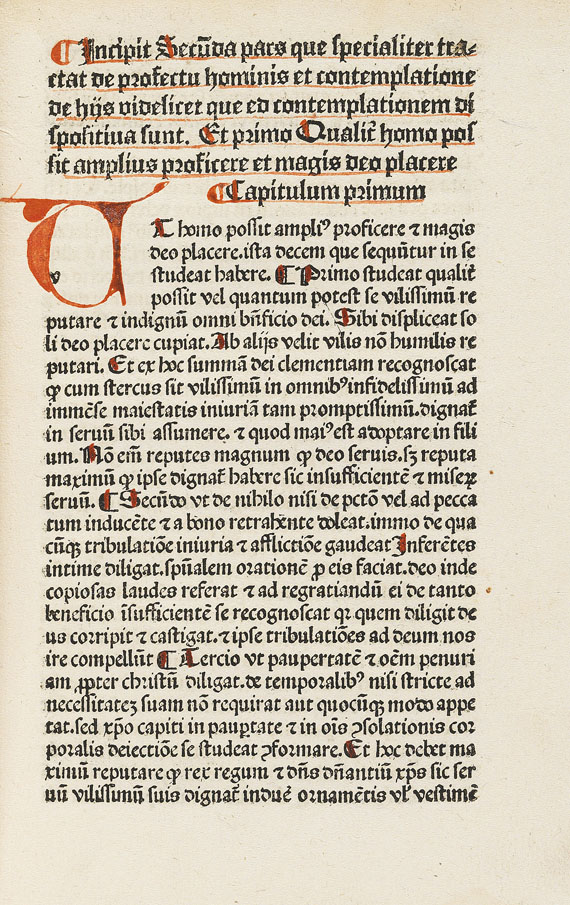 ¶ Incipit Secūda pars que specialiter tra-
ctat de profectu hominis et contemplatione
de hijs videlicet que ed contemplationem di
spositiua sunt. Et primo Qualit̄ homo pos
sit amplius proficere et magis deo placere
¶ Capitulum primum
VT homo possit ampliꝰ proficere ⁊ magis
deo placere.ista decem que sequūtur in se
studeat habere. ¶ Primo studeat qualit̄
possit vel quantum potest se vilissimū re
putare ⁊ indignū omni bn̄ficio dei. Sibi displiceat so
li deo placere cupiat. Ab alijs velit vilis nō humilis re
putari. Et ex hoc summā dei clementiam recognoscat
ꝙ cum stercus sit vilissimū in omnibꝰ infidelissimū ad
immēse maiestatis iniuriā tam promptissimū.dignat̄
in seruū sibi assumere. ⁊ quod maiꝰ est adoptare in fili
um. Nō eīn reputes magnum ꝙ deo seruis. sꝫ reputa
maximū ꝙ ipse dignat̄ habere sic insufficientē ⁊ miseꝝ
seruū. ¶ Secūdo vt de nihilo nisi de pctō vel ad pecca
tum inducēte ⁊ a bono retrahēte doleat.immo de qua
cūqꝫ tribulatiōe iniuria ⁊ afflictiōe gaudeat Inferētes
intime diligat. spūalem orationē ꝓ eis faciat.deo inde
copiosas laudes referat ⁊ ad regratiandū ei de tanto
beneficio īsufficientē se recognoscat qꝛ quem diligit de
us corripit ⁊ castigat. ⁊ ipse tribulatiōes ad deum nos
ire compellūt ¶ Tercio vt paupertatē ⁊ oēm penuri
am ꝓpter christū diligat. de temporalibꝰ nisi stricte ad
necessitateꝫ suam nō requirat aut quocūqꝫ modo appe
tat.sed xp̄o capiti in pauꝑtate ⁊ in oīs ꝯsolationis cor
poralis deiectiōe se studeat ꝯformare. Et hoc debet ma
ximū reputare ꝙ rex regum ⁊ dn̄s dn̄antiū xp̄s sic ser
uū vilissimū suis dignat̄ induē ornamētis vl̓ vestimē